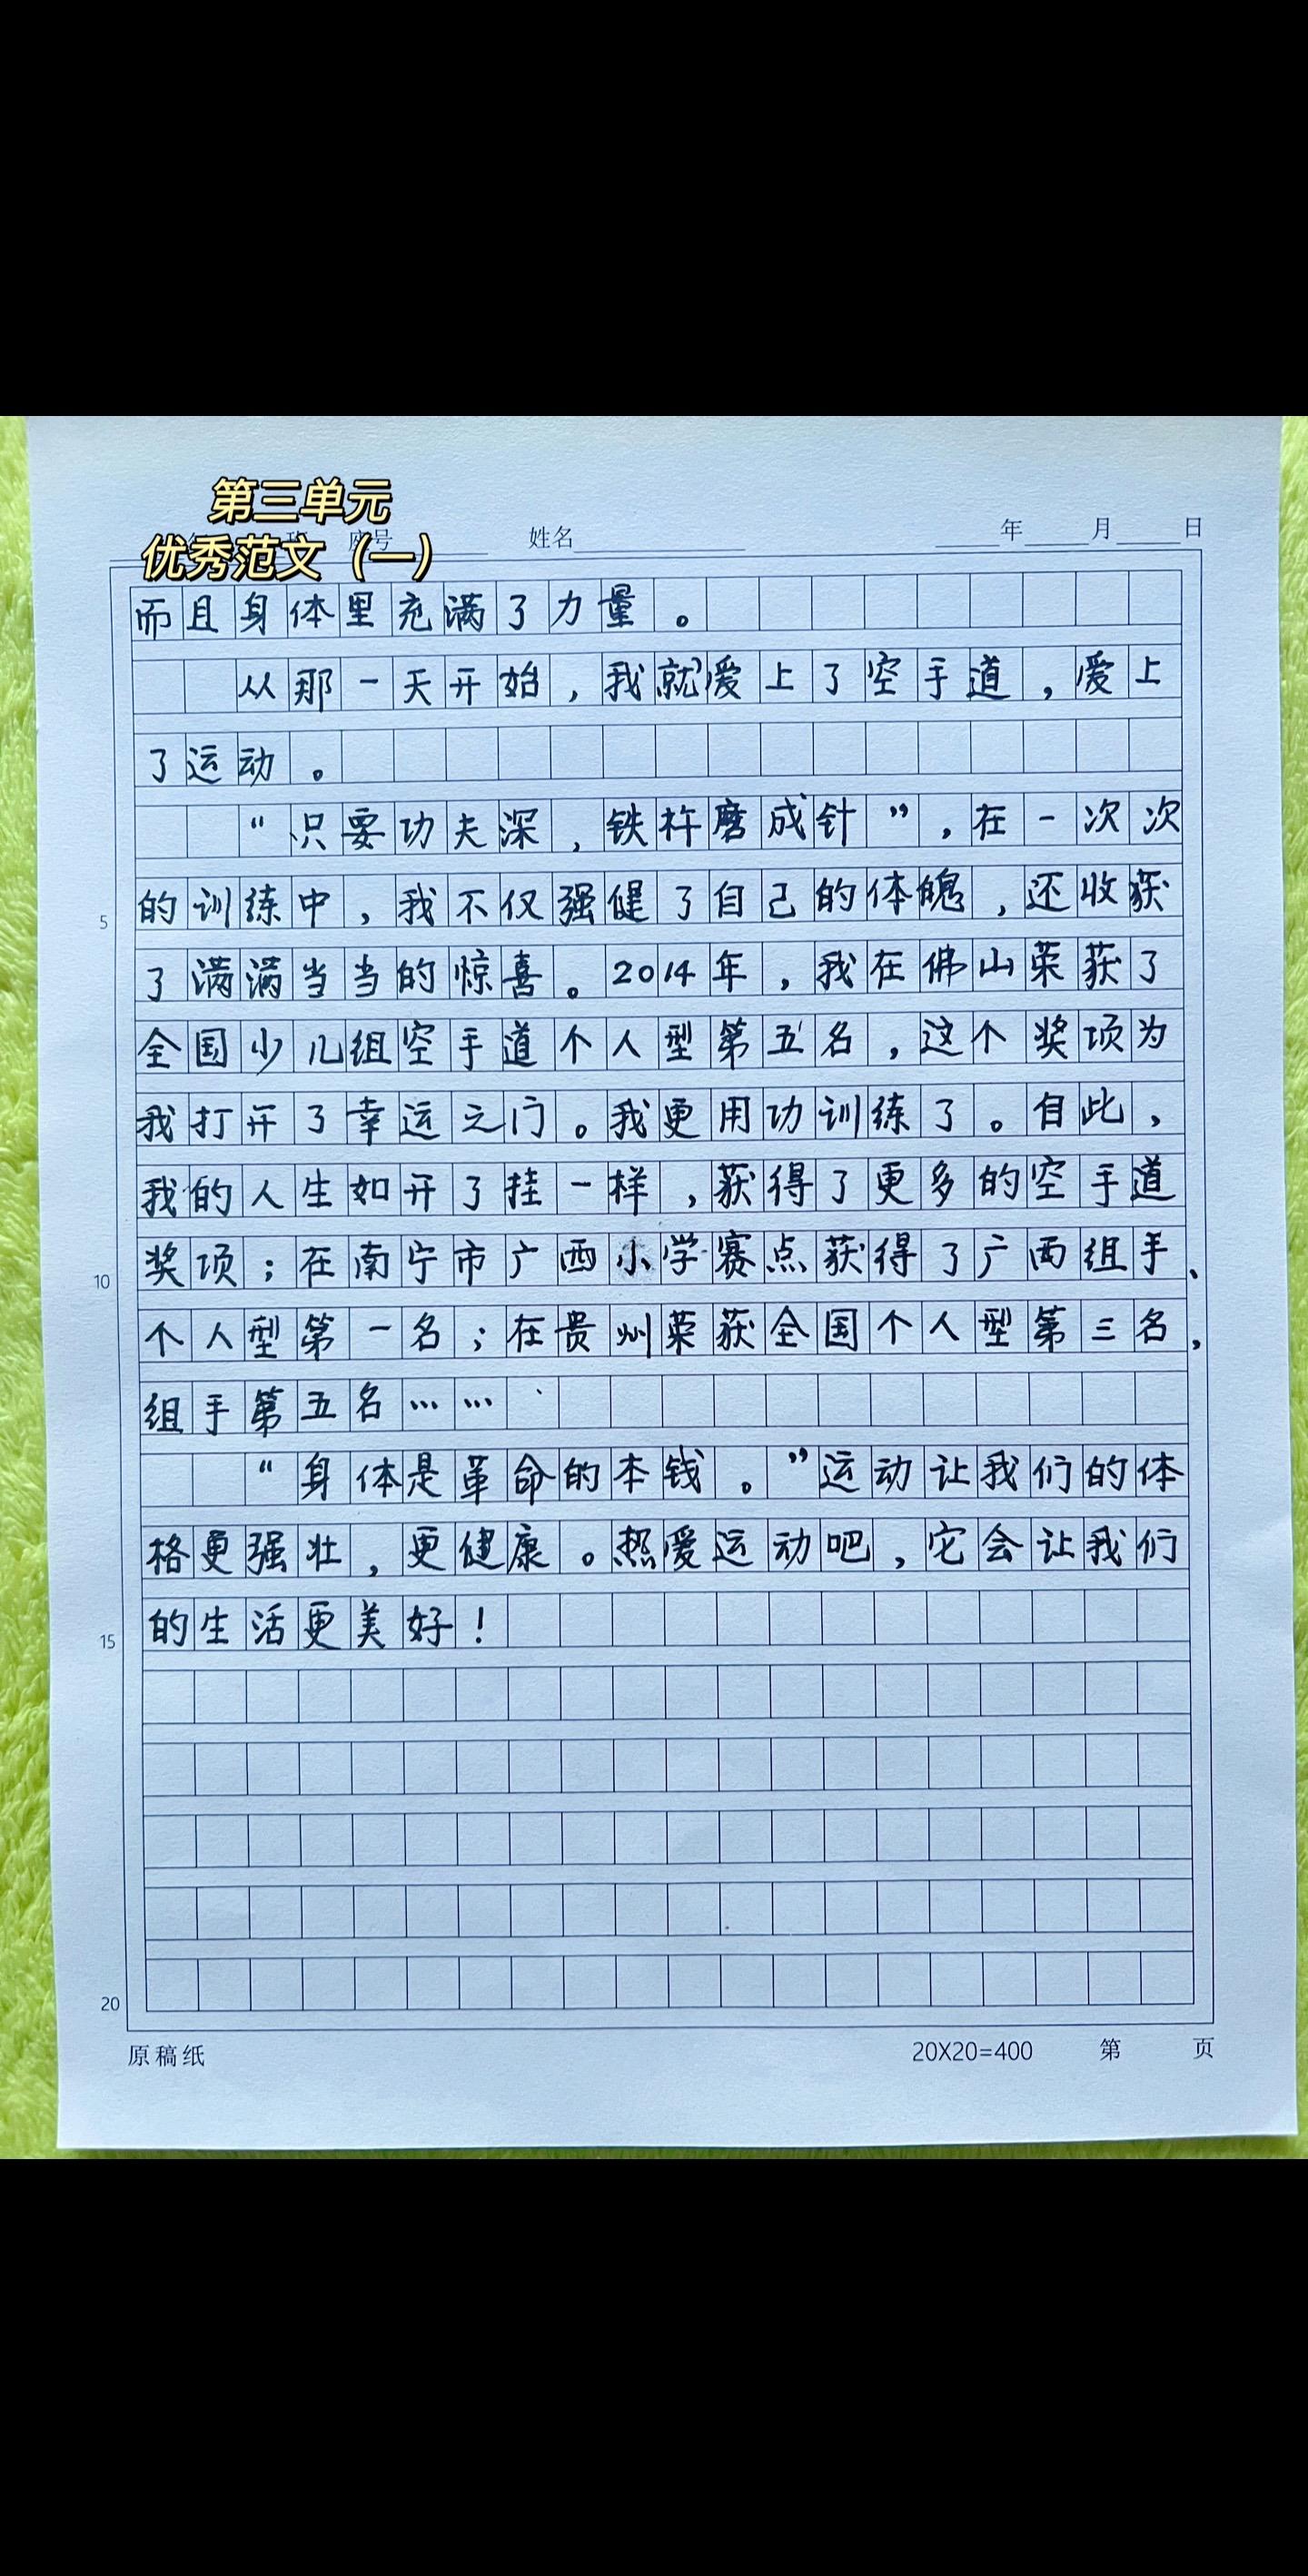 第三单元
优秀范文（一）
座号 姓名 年 月 日
而且身体里充满了力量。
从那一天开始，我就爱上了空手道，爱上
了运动。
“只要功夫深，铁杵磨成针”，在一次次
的训练中，我不仅强健了自己的体魄，还收获
5
了满满当当的惊喜。2014年，我在佛山荣获了
全国少儿组空手道个人型第五名，这个奖项为
我打开了幸运之门。我更用功训练了。自此，
我的人生如开了挂一样，获得了更多的空手道
奖项；在南宁市广西小学赛点获得了广西组手、
10
个人型第一名；在贵州荣获全国个人型第三名，
组手第五名……
“身体是革命的本钱。”运动让我们的体
格更强壮，更健康。热爱运动吧，它会让我们
的生活更美好！
15
20
原稿纸 20X20=400 第 页